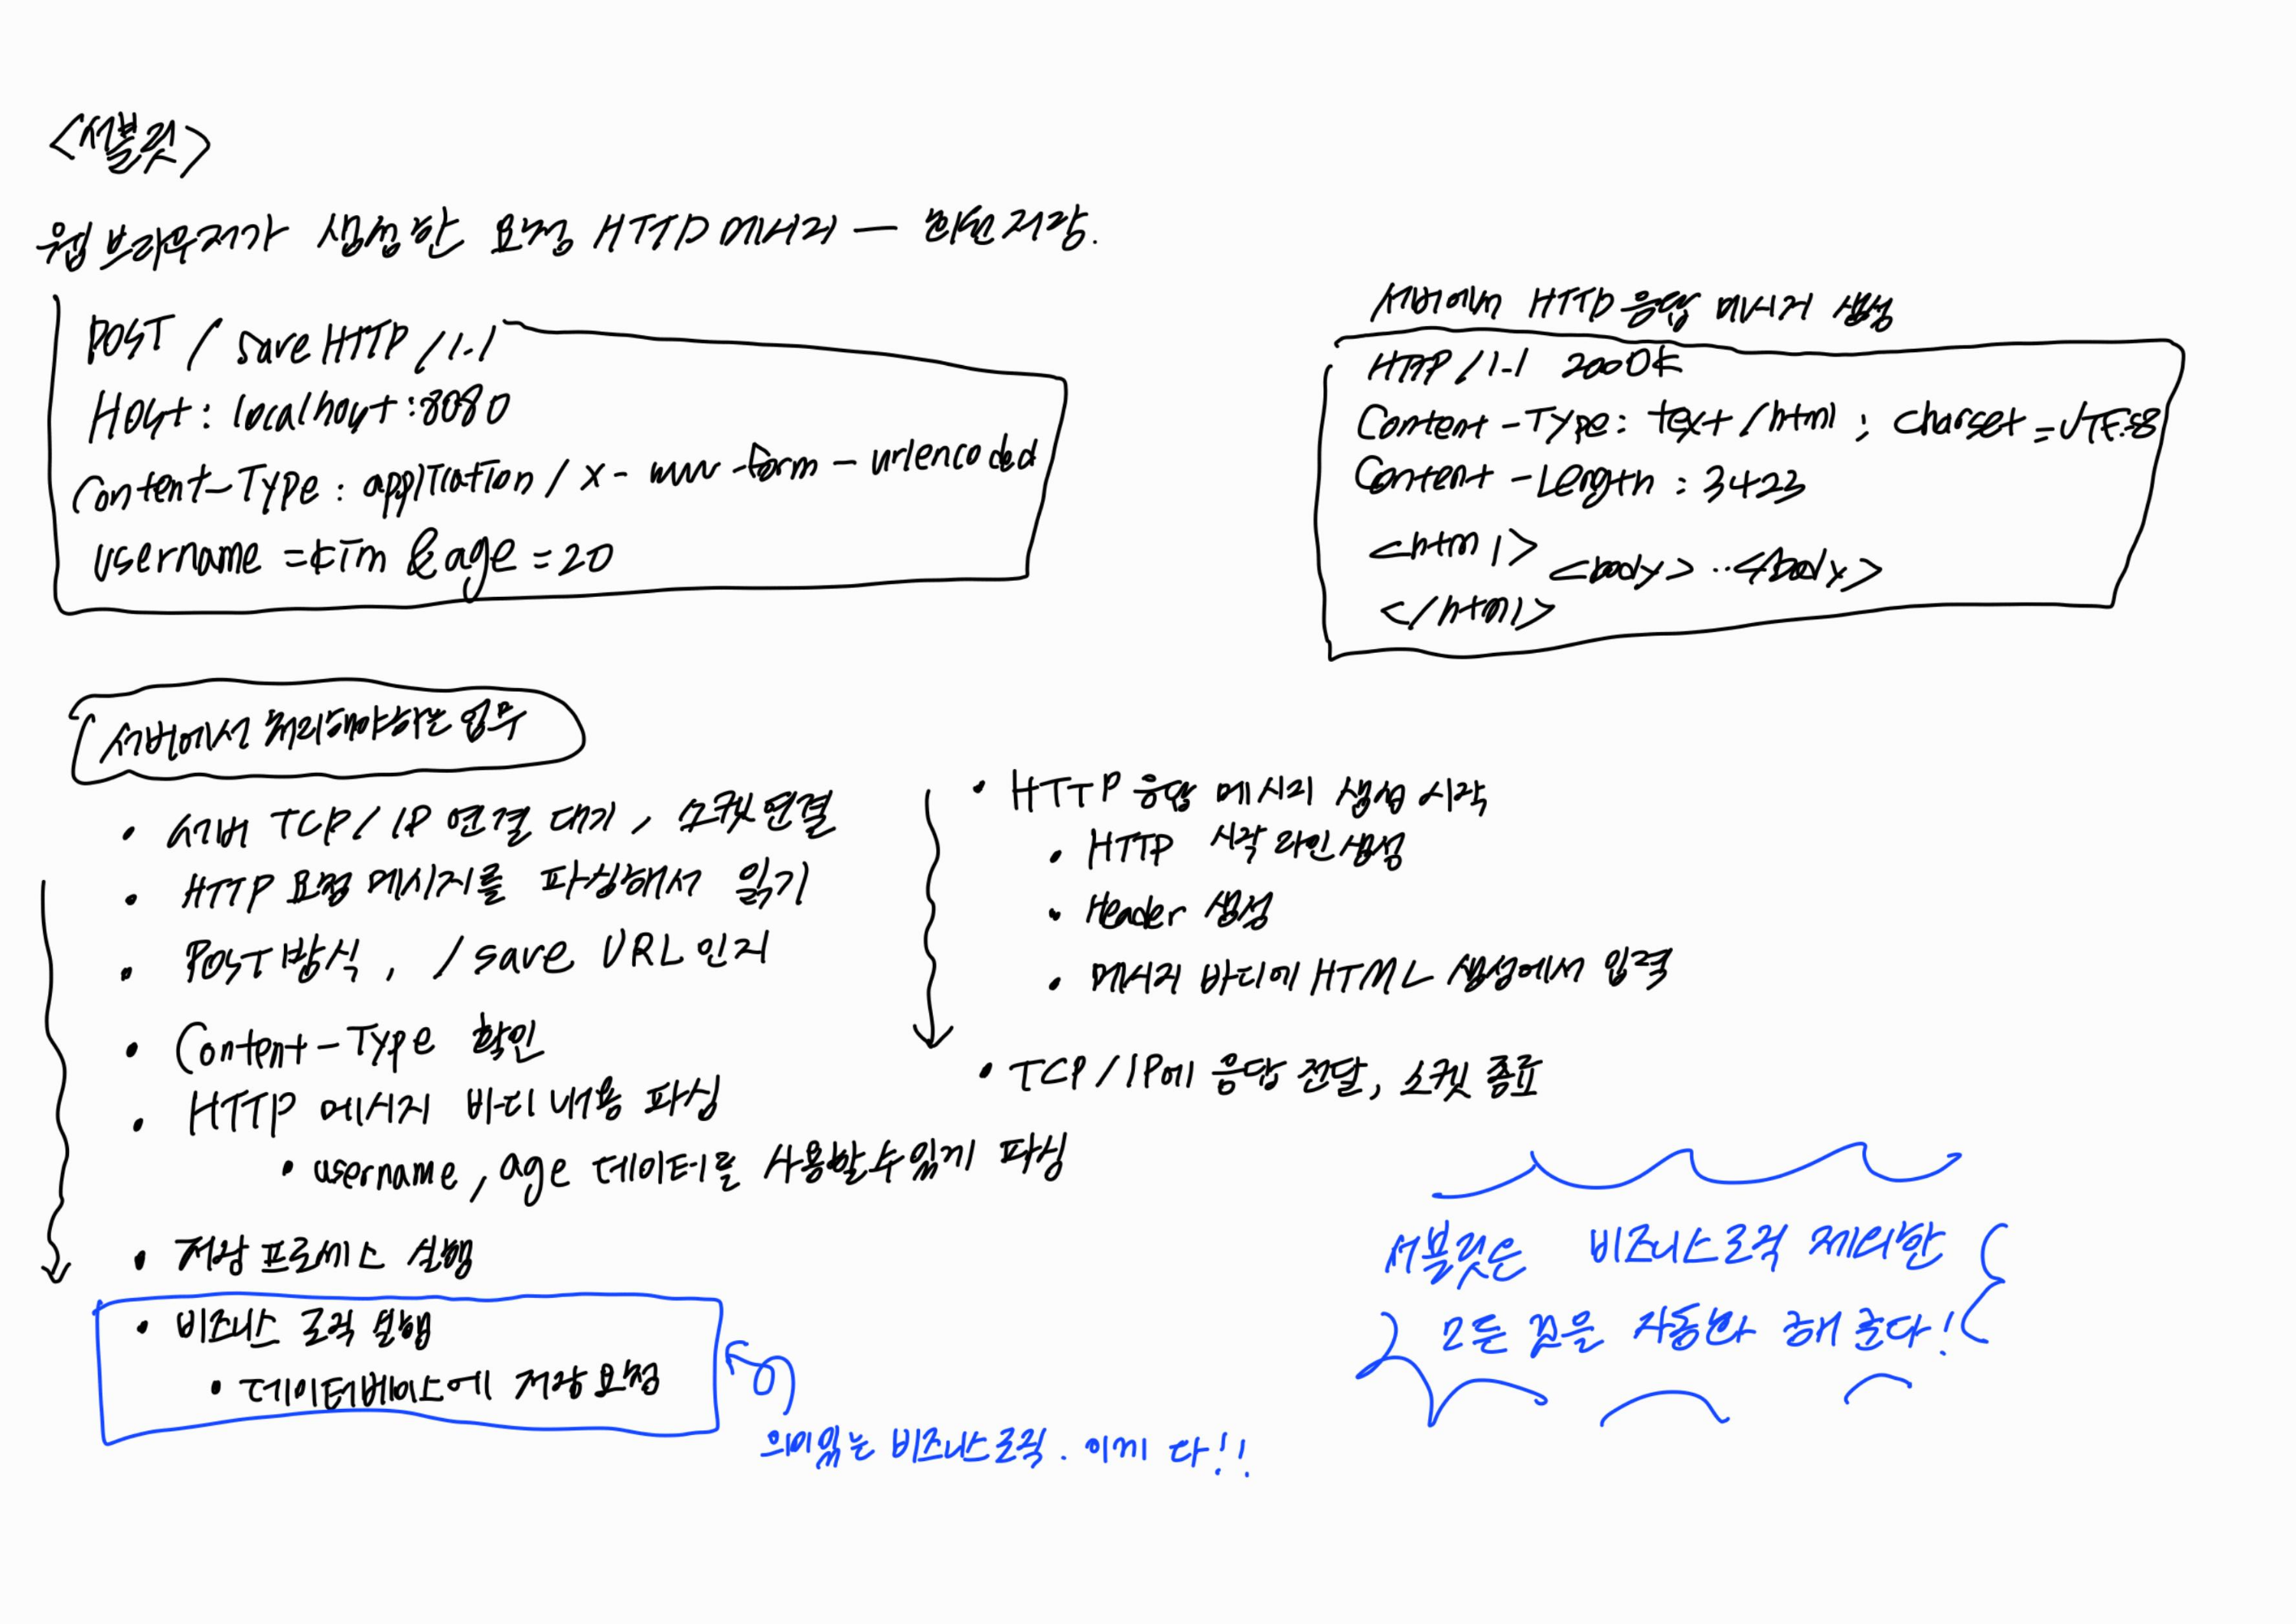 <서블릿>
웹 브라우저가 생성한 요청 HTTP 메시지 — 회원저장.
POST / save HTTP / 1.1
Host : localhost :8080
Content-Type : application / x - www -form - urlencoded
username = kim & age = 20
서버에서 HTTP 응답 메시지 생성
HTTP / 1.1 200 OK
Content -Type: text / html ; charset = UTF-8
Content -Length : 3423
<html>
<body> ..</body>
</html>
서버에서 처리해야하는 업무
• 서버 TCP/ IP 연결 대기 , 소켓 연결
• HTTP 요청 메시지를 파싱해서 읽기
• POST 방식 , / save URL 인지
• Content-Type 확인
• HTTP 메시지 바디 내용 파싱
• username , age 데이터를 사용할 수 있게 파싱
• 저장 프로세스 실행
• 비즈니스 로직 실행
• 데이터베이스에 저장 요청
• HTTP 응답 메시지 생성 시작
• HTTP 시작 라인 생성
• Header 생성
• 메시지 바디에 HTML 생성에서 입력
• TCP / IP에 응답 전달, 소켓 종료
의미있는 비즈니스 로직 . 이게 다!!
서블릿은 비즈니스 로직 제외한
모든 걸을 자동화 해 준다!